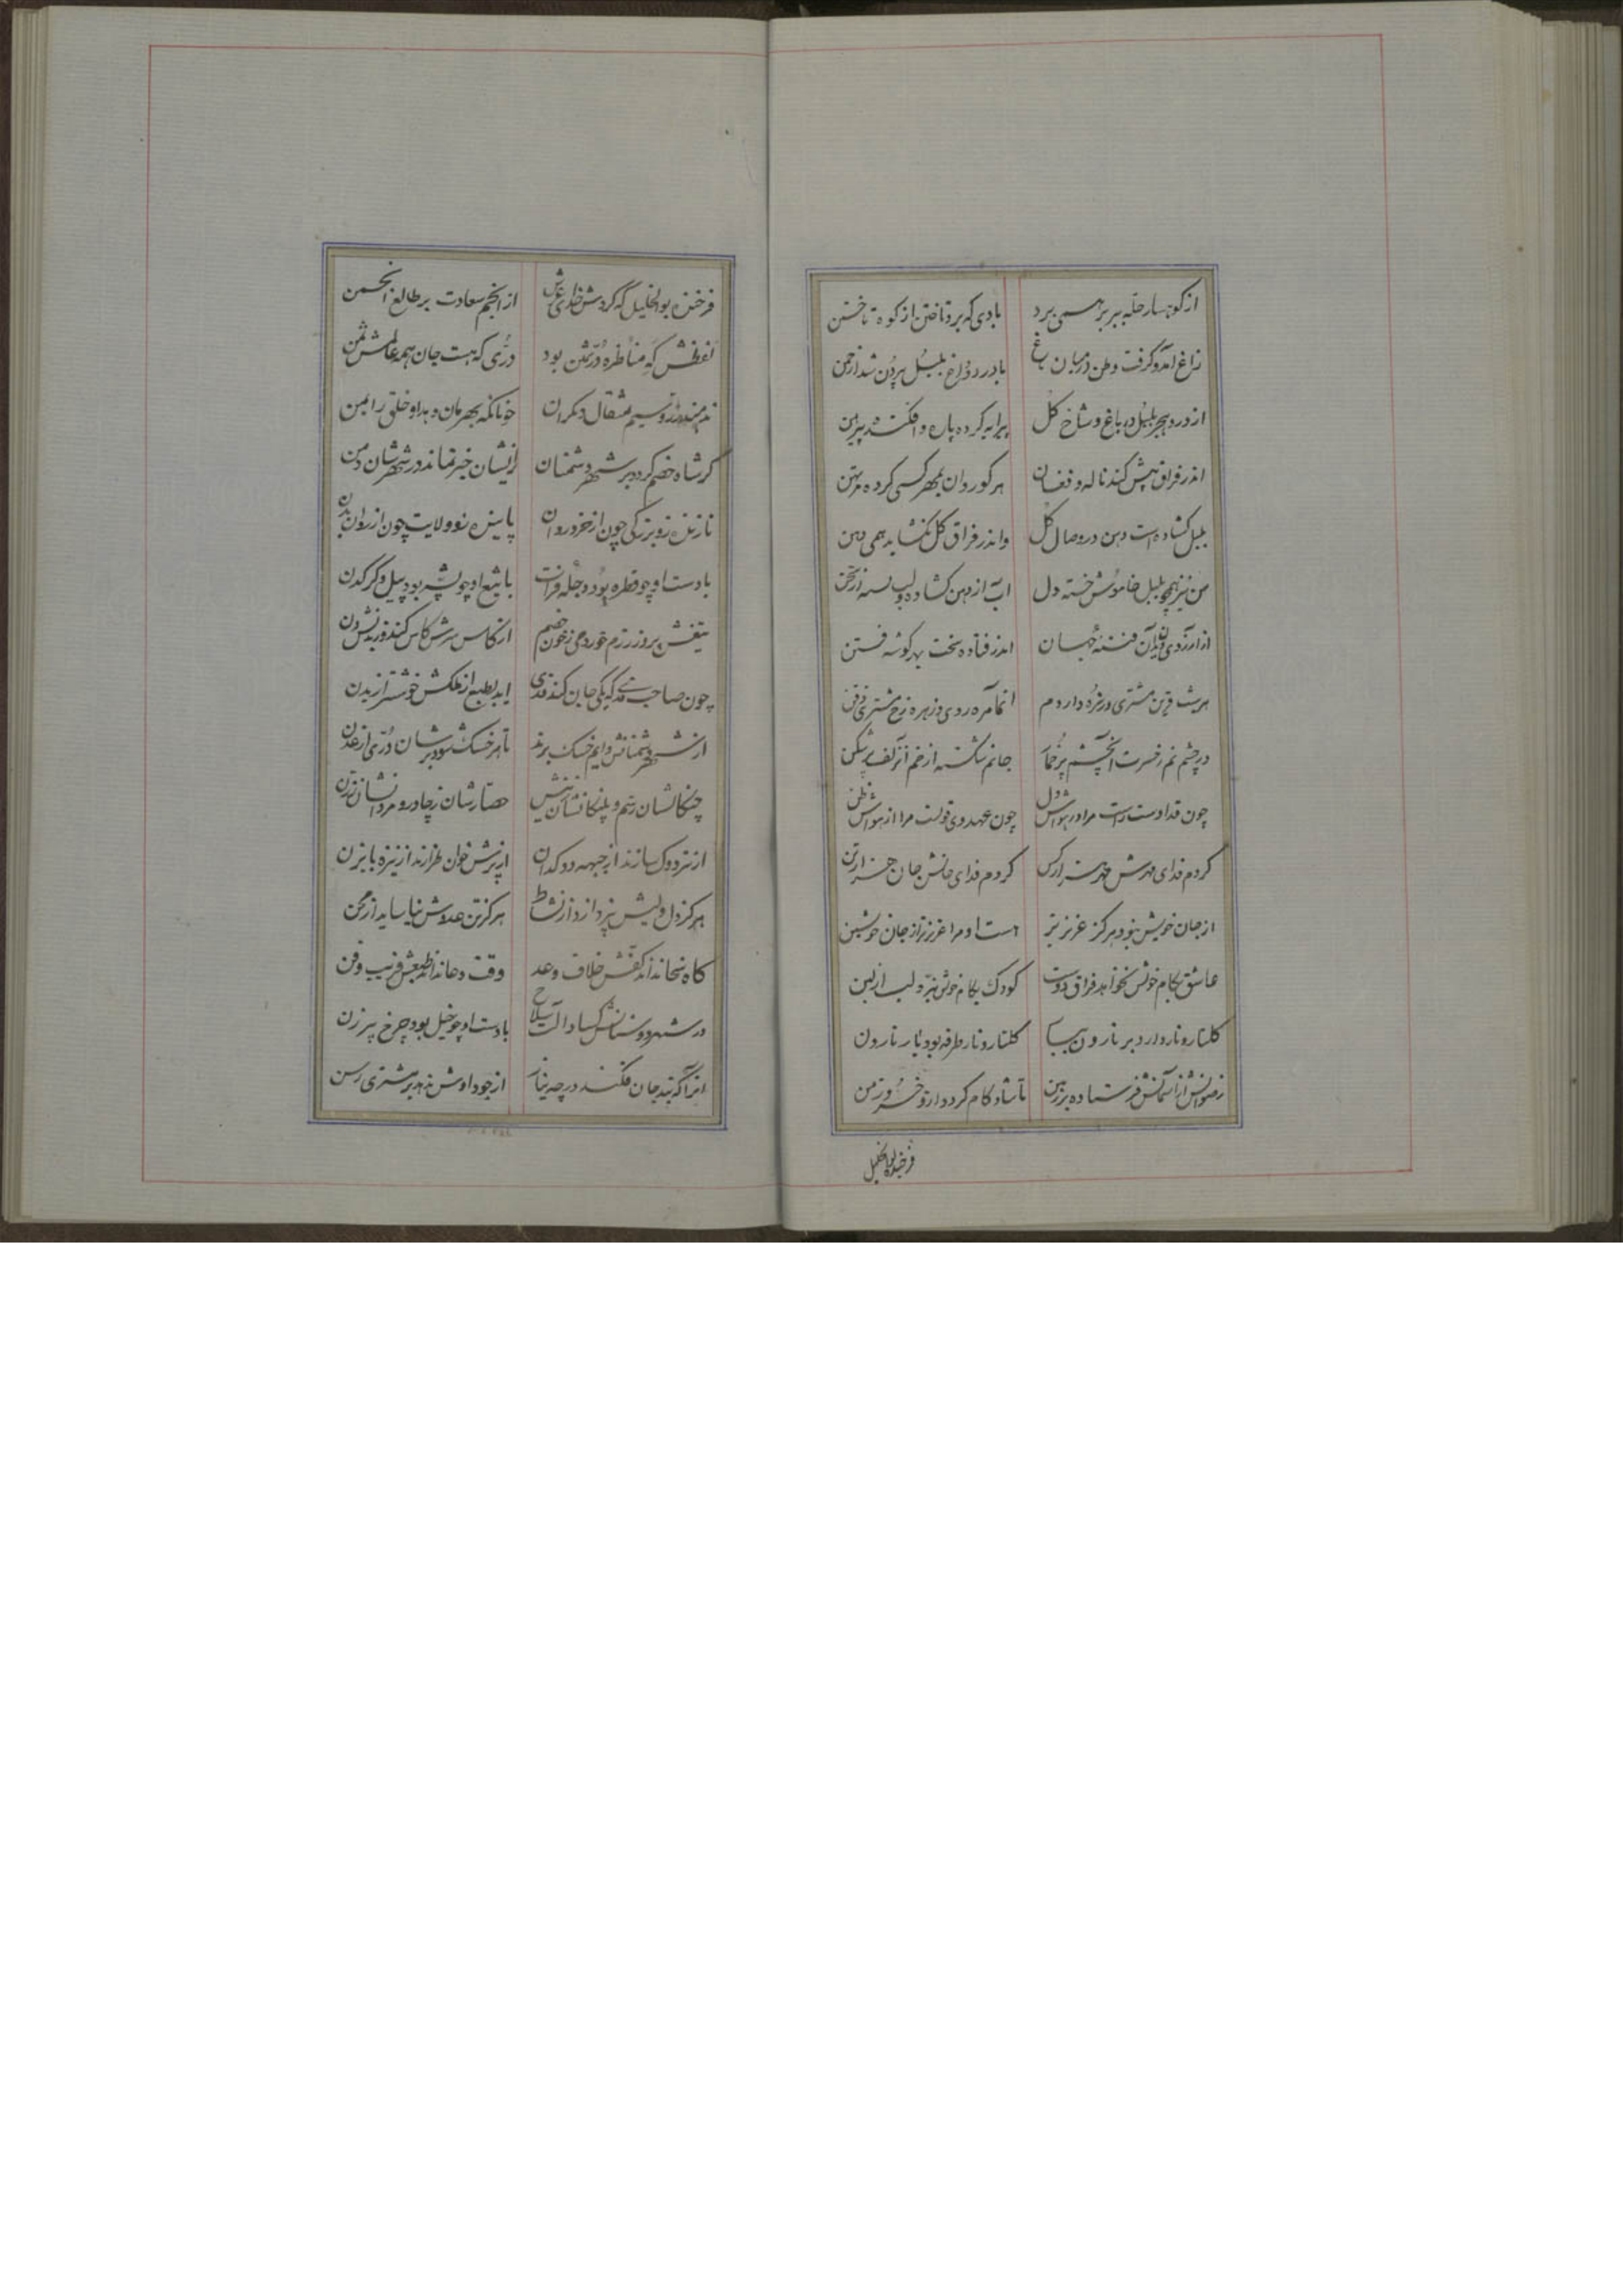 از کوهسار حله ببر بر همی برد بادی که برد تاختن از کوه تاختن
زاغ آمد و گرفت وطن در میان باغ با درد و داغ بلبل بیرون شد از چمن
از درد هجر بلبل در باغ و شاخ گل پیرایه کرده پاره و افکنده پیرهن
اندر فراق پیش کند ناله و فغان هر کو روان بمهر کسی کرده مرتهن
بلبل گشاده است دهن در وصال گل واندر فراق گل نگشاید همی دهن
من نیز همچو بلبل خاموش خسته دل آب از دهن گشاده و لب بسته از سخن
از آرزوی دیدن آن فتنه جهان اندر فتاده سخت بهر گوشه فتن
هر شب قرین مشتری و زهره دارم آن ماه روی و زهره رخ مشتری ذقن
در چشم نم ز حسرت آن چشم پر خمار جانم شکسته از خم آن زلف پر شکن
چون قد اوست راست مرا در هواش دل چون عهد وی قویست مرا از هواش ظن
کردم فدای مهرش مهر هزار کس کردم فدای جانش جان هزار تن
از جان خویش نبود هرگز عزیزتر هست او مرا عزیزتر از جان خویشتن
عاشق بکام خویش نخواهد فراق دوست کودک بکام خویش نبرد لب از لبن
گلنار و نار دارد بر نارون بیا گلنار و نار طرفه بود بار نارون
رضوانش از آسمانش فرستاده بر زمین تا شاد کام گردد ازو خسرو زمن
فرخنده بوالخلیل
فرخنده بوالخلیل که گردش خدای عرش از انجم سعادت بر طالع انجمن
لفظش که مناظره در ثمین بود دری که هست جان همه عالمش ثمن
ندهند زر و سیم بمثقال دیگران چونانکه بهرمان دهد او خلق را بمن
گر شاه خصم گردد بر شهر دشمنان زیشان خبر نماند در شهرشان و من
نازنده زو بزرگی چون از خرد روان پاینده زو ولایت چون از روان بدن
با دست او چو قطره بود دجله و فرات با تیغ او چو پشه بود پیل و کرگدن
تیغش بروز رزم خورد می ز خون خصم از کاس سرش کاس کند وز بدنش دن
چون صاحب که یکی جان کند فدی آید بطبع از ملکش خوشتر از بدن
از شهر دشمنانش دایم خسک برند تا هر خسک شود بر شان دری از عدن
چنگالشان رستم و پلنگانشان حصارشان ز چادر و مردانشان ز زن
از نیزه دوک سازند از جبهه دوکدان از ترش خوان طرازند از نیزه بابزن
هرگز دل ولیش نپردازد از نشاط هرگز تن عدوش نیاساید از محن
گاه سخا نداند کفش خلاف وعد وقت دعا نداند طبعش فریب و فن
در شهر دوستانش کساد آلت سلاح با دست او چو خیل بود چرخ پیرزن
آنرا که بند جان فکند در چه نیاز از جود اوش ندهد بر مشتری رسن